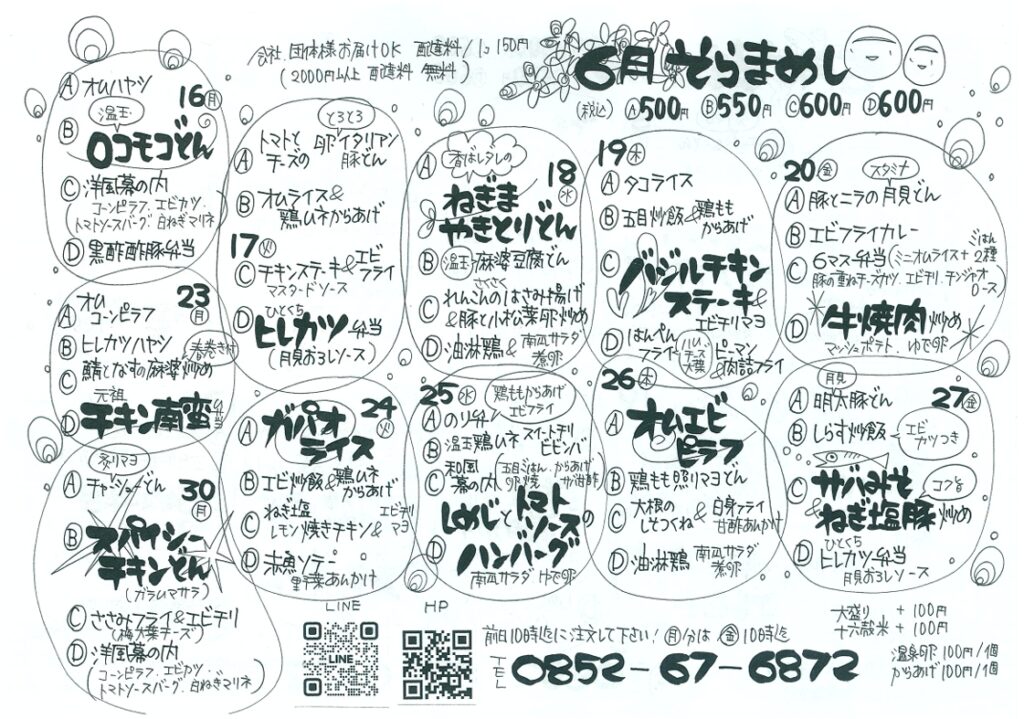 会社、団体様お届けOK 配達料/1コ150円
(2000円以上 配達料 無料)
6月 そらまめし
(税込) Ⓐ500円 Ⓑ550円 Ⓒ600円 Ⓓ600円
16㊊
Ⓐ オムハヤシ
Ⓑ 温玉 ロコモコどん
Ⓒ 洋風幕の内
(コーンピラフ、エビカツ、
トマトソースバーグ、白ねぎマリネ)
Ⓓ 黒酢酢豚弁当
17㊋
Ⓐ トマトとチーズの とろとろ 卵イタリアン豚どん
Ⓑ オムライス&
鶏ムネからあげ
Ⓒ チキンステーキ&エビフライ
マスタードソース
Ⓓ ひとくち
ヒレカツ弁当
(月見おろしソース)
18㊌
Ⓐ 香ばしダレの
ねぎま
やきとりどん
Ⓑ 温玉 麻婆豆腐どん
Ⓒ さくさく
れんこんのはさみ揚げ
&豚と小松菜卵炒め
Ⓓ 油淋鶏& 南瓜サラダ
煮卵
19㊍
Ⓐ タコライス
Ⓑ 五目炒飯&鶏もも
からあげ
Ⓒ バジルチキン
ステーキ&
エビチリマヨ
Ⓓ はんぺんフライ ハム チーズ 大葉
ピーマン
&肉詰フライ
20㊎
Ⓐ スタミナ
豚とニラの月見どん
Ⓑ エビフライカレー
Ⓒ 6マス弁当(ミニオムライス+ごはん2種
豚の重ねチーズカツ、エビチリ、チンジャオロース)
Ⓓ 牛焼肉炒め
マッシュポテト、ゆで卵
23㊊
Ⓐ オム
コーンピラフ
Ⓑ ヒレカツハヤシ
Ⓒ 鯖となすの麻婆炒め 春巻き付
Ⓓ 元祖
チキン南蛮弁当
24㊋
Ⓐ ガパオ
ライス
Ⓑ エビ炒飯&鶏ムネ
からあげ
Ⓒ ねぎ塩
レモン焼きチキン&エビチリマヨ
Ⓓ 赤魚ソテー
野菜あんかけ
25㊌
Ⓐ のり弁 鶏ももからあげ
エビフライ
Ⓑ 温玉鶏ムネ スイートチリ
ビビンバ
Ⓒ 和風
幕の内 (五目ごはん、からあげ
卵焼 サバ甘酢)
Ⓓ しめじとトマト
ソースの
ハンバーグ
南瓜サラダ ゆで卵
26㊍
Ⓐ オムエビ
ピラフ
Ⓑ 鶏もも照りマヨどん
Ⓒ 大根の
しそつくね & 白身フライ
甘酢あんかけ
Ⓓ 油淋鶏 南瓜サラダ
煮卵
27㊎
Ⓐ 月見
明太豚どん
Ⓑ しらす炒飯 エビカツつき
Ⓒ サバみそ
&ねぎ塩豚炒め コク旨
Ⓓ ひとくち
ヒレカツ弁当
月見おろしソース
30㊊
Ⓐ 炙りマヨ
チャーシューどん
Ⓑ スパイシー
チキンどん
(ガラムマサラ)
Ⓒ ささみフライ&エビチリ
(梅大葉チーズ)
Ⓓ 洋風幕の内
(コーンピラフ、エビカツ、
トマトソースバーグ、白ねぎマリネ)
LINE
HP
LINE
前日10時迄に注文して下さい! ㊊分は㊎10時迄
TEL 0852-67-6872
大盛り +100円
十六穀米 +100円
温泉卵 100円/1個
からあげ 100円/1個